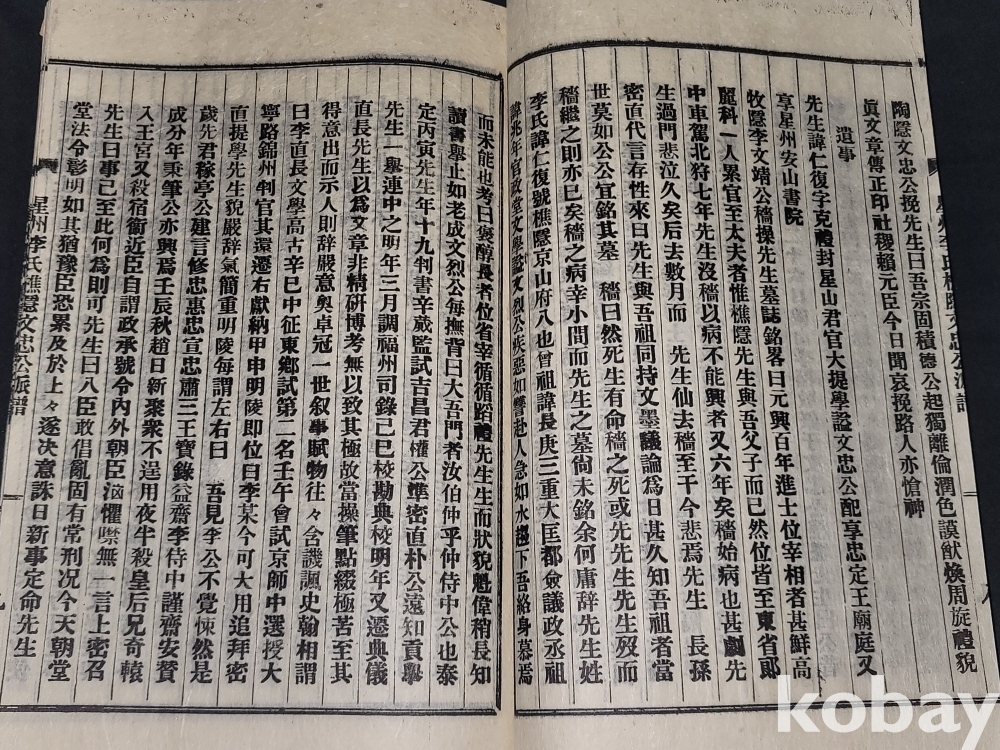 陶隱文忠公挽先生曰吾宗固積德公起獨離倫潤色謨猷煥周旋禮貌
眞文章傳正印社稷賴元臣今日聞哀挽路人亦愴神
遺事
先生諱仁復字克禮封星山君官大提學諡文忠公配享忠定王廟庭又
享星州安山書院
牧隱李文靖公穡操先生墓誌銘畧曰元興百年進士位宰相者甚鮮高
麗科一人累官至太夫者惟樵隱先生與吾父子而已然位皆至東省郞
中車駕北狩七年先生沒穡以病不能興者又六年矣穡始病也甚劇先
生過門悲泣久矣后去數月而 先生仙去穡至于今悲焉先生 長孫
密直代言存性來曰先生與吾祖同持文墨議論爲日甚久知吾祖者當
世莫如公公宜銘其墓 穡曰然死生有命穡之死或先先生先生歿而
穡繼之則亦已矣穡之病幸小間而先生之墓尙未銘余何庸辞先生姓
李氏諱仁復號樵隱京山府八也曾祖諱長庚三重大匡都僉議政丞祖
諱兆年官政堂文學諡文烈公疾惡如讐赴人急如水極下吾絡身慕焉
而未能也考曰褒醇長者位省宰循循蹈禮先生生而狀貌魁偉稍長知
讀書擧止如老成文烈公每撫背曰大吾門者汝伯仲乎仲侍中公也泰
定丙寅先生年十九判書辛蕆監試吉昌君權公準密直朴公遠知貢擧
先生一擧連中之明年三月調福州司錄己巳校勘典校明年又遷典儀
直長先生以爲文章非精硏博考無以致其極故當操筆點綴極苦至其
得意出而示人則辞嚴意奧卓冠一世叙事賦物往々含譏諷史翰相謂
曰李直長文學高古辛巳中征東鄕試第二名壬午會試京師中選授大
寧路錦州判官其還遷右獻納甲申明陵卽位曰李某今可大用追拜密
直提學先生貌嚴辞氣簡重明陵每謂左右曰 吾見李公不覺悚然是
歲先君稼亭公建言修忠惠忠宣忠肅三王實錄益齋李侍中謹齋安贊
成分年秉筆公亦興焉壬辰秋趙日新聚衆不逞用夜半殺皇后兄奇轅
入王宮又殺宿衞近臣自謂政承號令內外朝臣洶懼噤無一言上密召
先生曰事已至此何爲則可先生曰八臣敢倡亂固有常刑况今天朝堂
堂法令彰明如其猶豫臣恐累及於上々遂决意誅日新事定命先生
星州李氏樵隱文忠公派譜